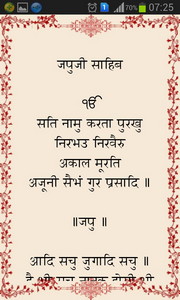 07:25
जपुजी साहिब
ੴ
सति नामु करता पुरखु
निरभउ निरवैरु
अकाल मूरति
अजूनी सैभं गुर प्रसादि ॥
॥जपु ॥
आदि सचु जुगादि सचु ॥
है भी सचु नानक होसी भी